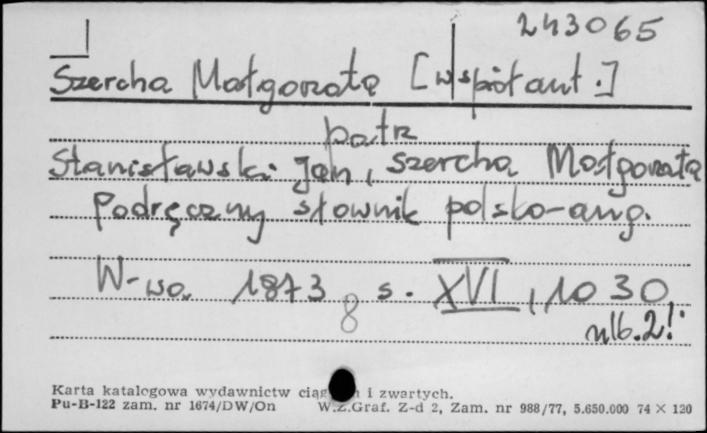 243065
Szercha Małgorzata [współaut.]
patrz
Stanisławski Jan, Szercha Małgorzata
Podręczny słownik polsko-ang.
W-wa 1873 s. XVI, 1030
8
nlb. 2!
Karta katalogowa wydawnictw ciąg i zwartych.
Pu-B-122 zam. nr 1674/DW/On W.Z.Graf. Z-d 2, Zam. nr 988/77, 5.650.000 74 × 120